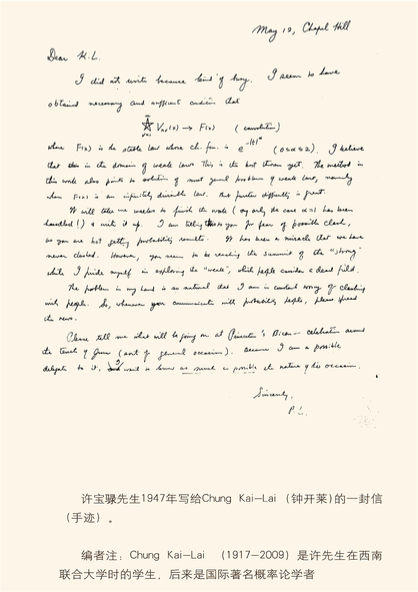 May 12, Chapel Hill
Dear K.L.
I did not write because kind of busy. I seem to have
obtained necessary and sufficient condition that
→ F(x) (convolution)
where F(x) is the stable law whose ch. fun. is e^{-|t|^α} (0≤α≤2). I believe
that in the domain of weak laws this is the best theorem yet. The method in
this work also points to solution of most general problems of weak law, namely
when F(x) is an infinitely divisible law. But further difficulty is great.
It will take me weeks to finish the work (my only the case α=1 has been
handled!) & write it up. I am telling this to you for fear of possible clash,
as you are hot getting probability results. It has been a miracle that we have
never clashed. However, you seem to be reaching the summit of the "strong"
while I pride myself in exploring the "weak", which people consider a dead field.
The problem in my hand is so natural that I am in constant worry of clashing
with people. So, whenever you communicate with probability people, please spread
the news.
Please tell me what will be going on at Princeton's Bicen- celebration around
the of June (sort of general occasion). Because I am a possible
delegate to it, I want to know as much as possible the nature of this occasion.
Sincerely,
P.L.
许宝騄先生1947年写给Chung Kai-Lai（钟开莱)的一封信
（手迹）。
编者注：Chung Kai-Lai （1917-2009）是许先生在西南
联合大学时的学生，后来是国际著名概率论学者